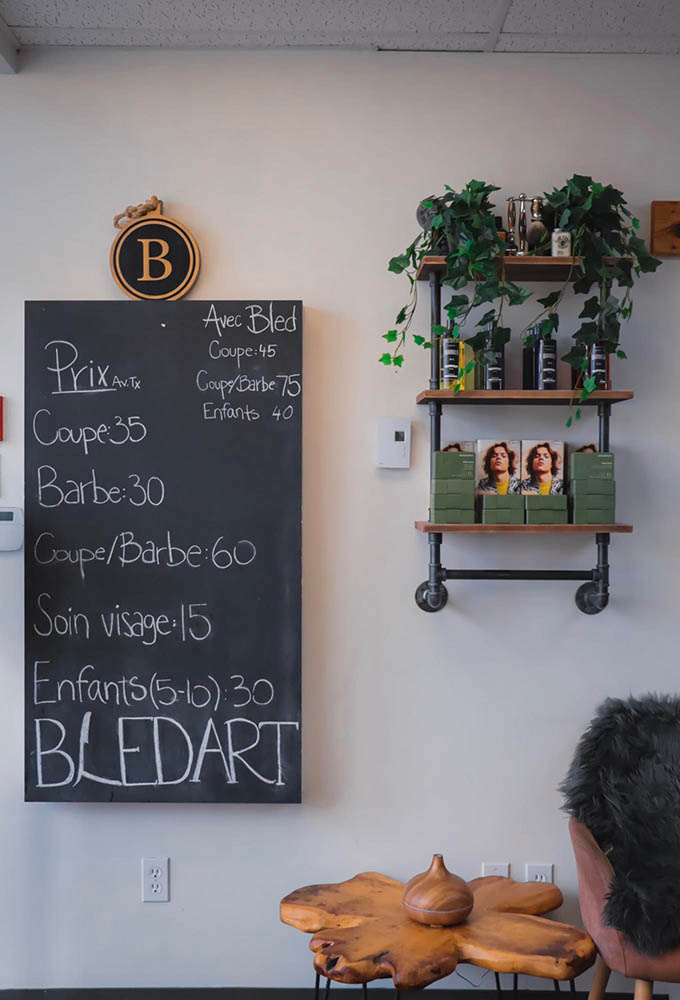 B
Avec Bled
Coupe:45
Coupe/Barbe 75
Enfants 40
Prix Av.Tx
Coupe:35
Barbe:30
Coupe/Barbe:60
Soin visage:15
Enfants(5-10):30
BLEDART